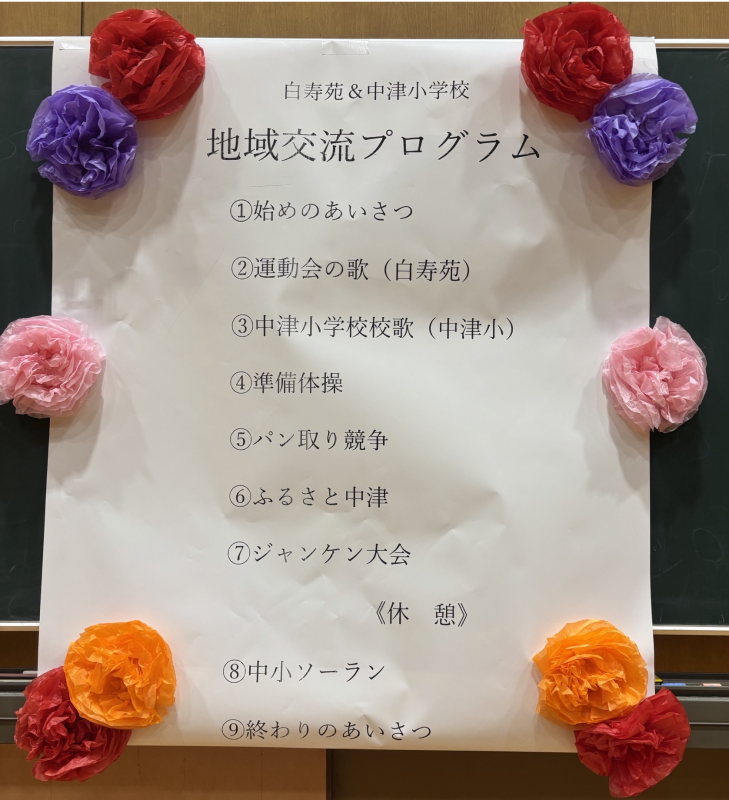 白寿苑＆中津小学校
地域交流プログラム
①始めのあいさつ
②運動会の歌（白寿苑）
③中津小学校校歌（中津小）
④準備体操
⑤パン取り競争
⑥ふるさと中津
⑦ジャンケン大会
《休　憩》
⑧中小ソーラン
⑨終わりのあいさつ